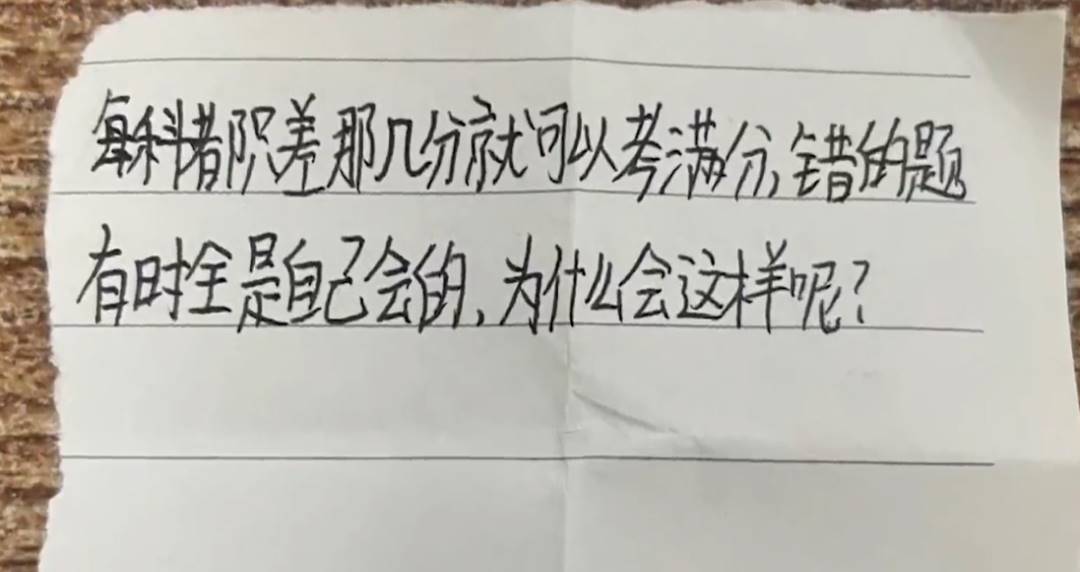 每科都只差那几分就可以考满分,错的题
有时全是自己会的,为什么会这样呢?